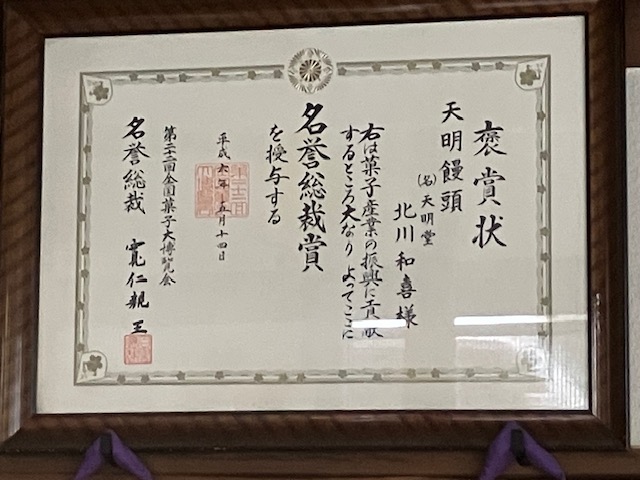 褒賞状
天明饅頭
(名)天明堂
北川和喜様
右は菓子産業の振興に貢献
するところ大なりよってここに
名誉総裁賞
を授与する
平成六年五月十四日
第二十二回全国菓子大博覧会
名誉総裁 寛仁親王